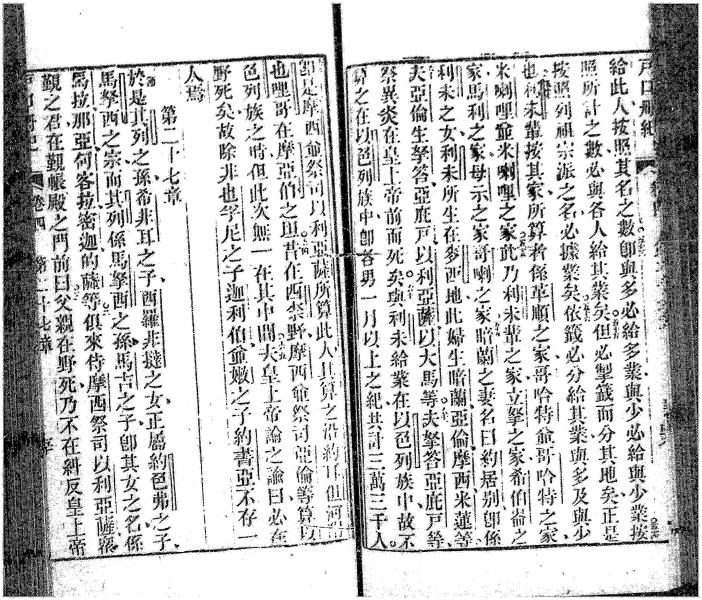 戶口冊紀
給此人按照其名之數卽與多必給多業與少必給與少業按
照所計之數必與各人給其業矣但必掣籤而分其地矣正是
按照列祖宗派之名必據業矣依籤必分給其業與多及與少
也利未輩按其家所算者係革順之家哥哈特爺哥哈特之家
米喇哩爺米喇哩之家此乃利未輩之家立拏之家希伯崙之
家馬利之家母示之家哥喇之家暗蘭之妻名曰約居別卽係
利未之女利未所生在麥西地此婦生暗蘭亞倫摩西米蓮等
夫亞倫生拏答亞庇戶以利亞薩以大馬等夫拏答亞庇戶等
祭異炎在皇上帝前而死矣與利未給業在以色列族中故不
算之在以色列族中卽答男一月以上之紀共計三萬三千人
是摩西爺祭司以利亞薩所算此人其算之沿約耳但河
也哩哥在摩亞伯之坦昔在西柰野摩西爺祭司亞倫等算以
色列族之時但此次無一在其中間夫皇上帝論之論曰必在
野死矣故除非也孚尼之子迦利伯爺嫩之子約書亞不存一
人焉
第二十七章
於是其列之孫希非耳之子西羅非撻之女正屬約色弗之子
馬拏西之宗而其列係馬拏西之孫馬吉之子卽其女之名係
馬拉那亞何客拉密迦的薩等俱來侍摩西祭司以利亞薩
觐之君在觐帳殿之門前曰父親在野死乃不在糾反皇上帝
卷四 第二十七章